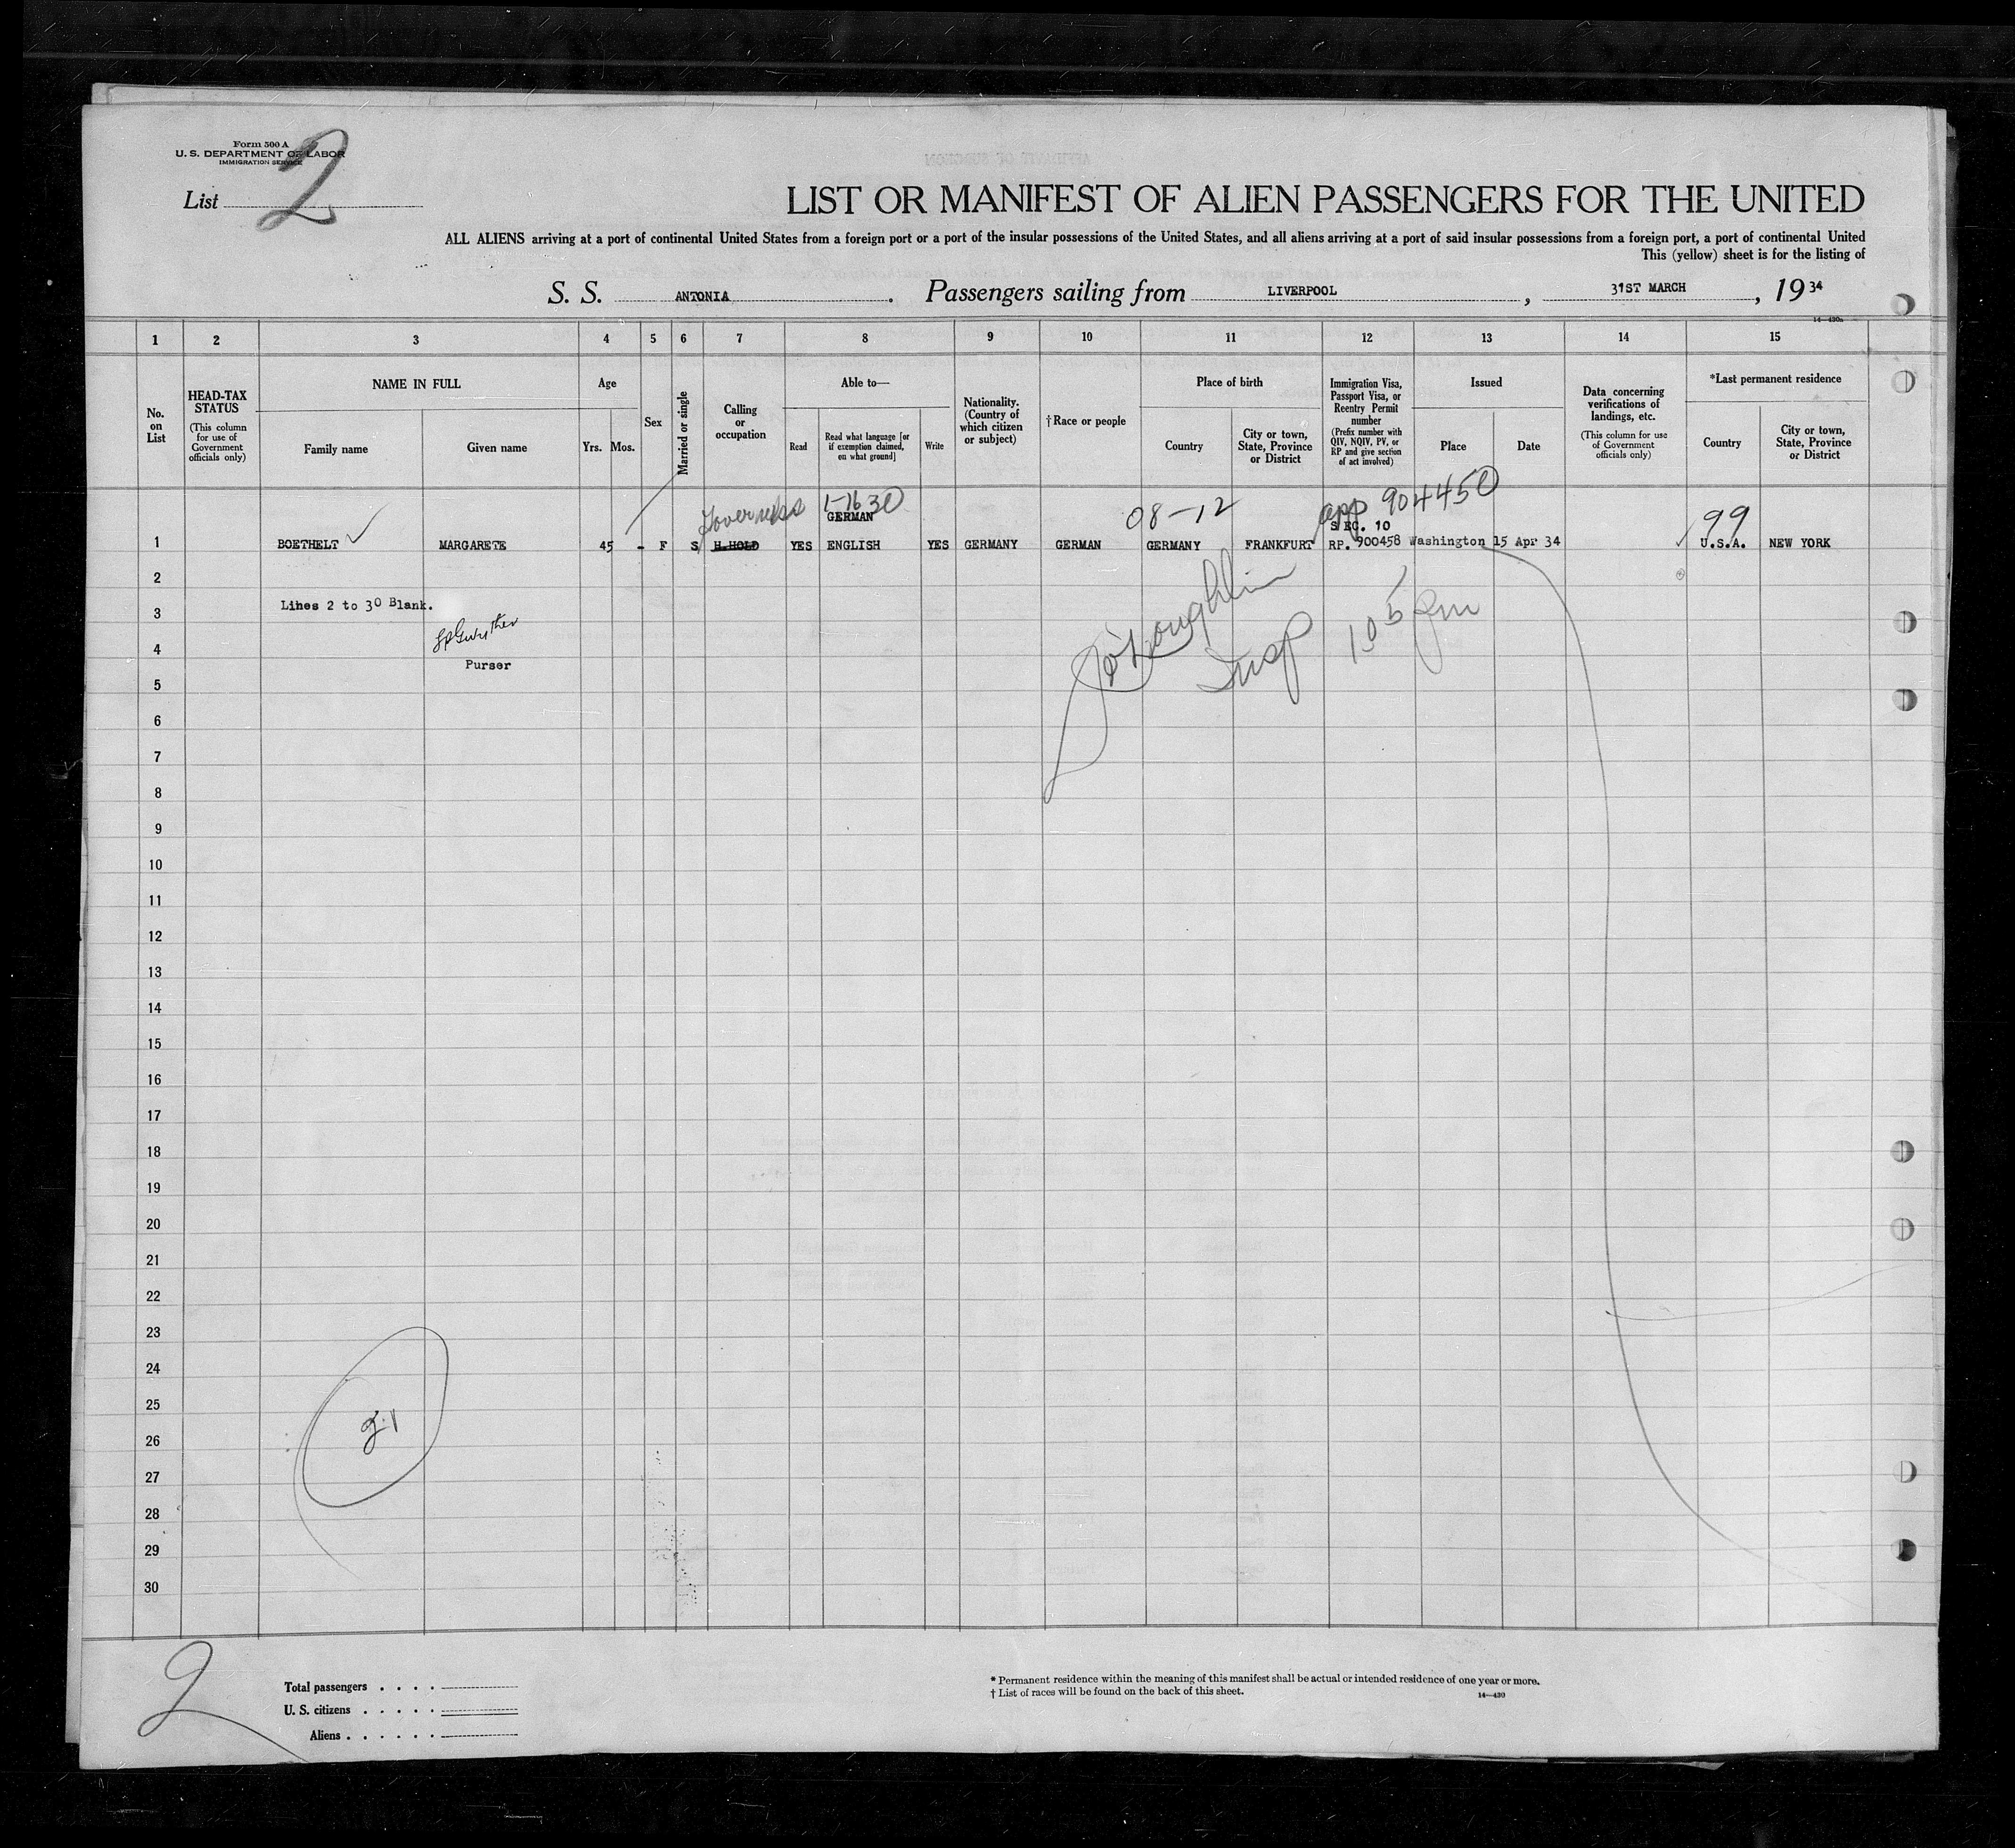 Form 500 A
U. S. DEPARTMENT OF LABOR
IMMIGRATION SERVICE
List 2
LIST OR MANIFEST OF ALIEN PASSENGERS FOR THE UNITED
ALL ALIENS arriving at a port of continental United States from a foreign port or a port of the insular possessions of the United States, and all aliens arriving at a port of said insular possessions from a foreign port, a port of continental United
This (yellow) sheet is for the listing of
S. S. ANTONIA. Passengers sailing from LIVERPOOL, 31ST MARCH, 19 34
1 2 3 4 5 6 7 8 9 10 11 12 13 14 15
No. on List
HEAD-TAX STATUS
(This column for use of Government officials only)
NAME IN FULL
Family name
Given name
Age
Yrs. Mos.
Sex
Married or single
Calling or occupation
Able to—
Read
Read what language [or if exemption claimed, on what ground]
Write
Nationality. (Country of which citizen or subject)
†Race or people
Place of birth
Country
City or town, State, Province or District
Immigration Visa, Passport Visa, or Reentry Permit number
(Prefix number with QIV, NQIV, PV, or RP and give section of act involved)
Issued
Place
Date
Data concerning verifications of landings, etc.
(This column for use of Government officials only)
*Last permanent residence
Country
City or town, State, Province or District
Governess 1-1630 08-12 app 904450 99
GERMAN SEC. 10
1 BOETHELT MARGARETE 45 - F S H.HOLD YES ENGLISH YES GERMANY GERMAN GERMANY FRANKFURT RP. 900458 Washington 15 Apr 34 U.S.A. NEW YORK
2
Lines 2 to 30 Blank.
3
4
Purser
Insp 10 5 pm
5
6
7
8
9
10
11
12
13
14
15
16
17
18
19
20
21
22
23
24
25
26
27
28
29
30
2
Total passengers
U. S. citizens
Aliens
* Permanent residence within the meaning of this manifest shall be actual or intended residence of one year or more.
† List of races will be found on the back of this sheet.
14—430